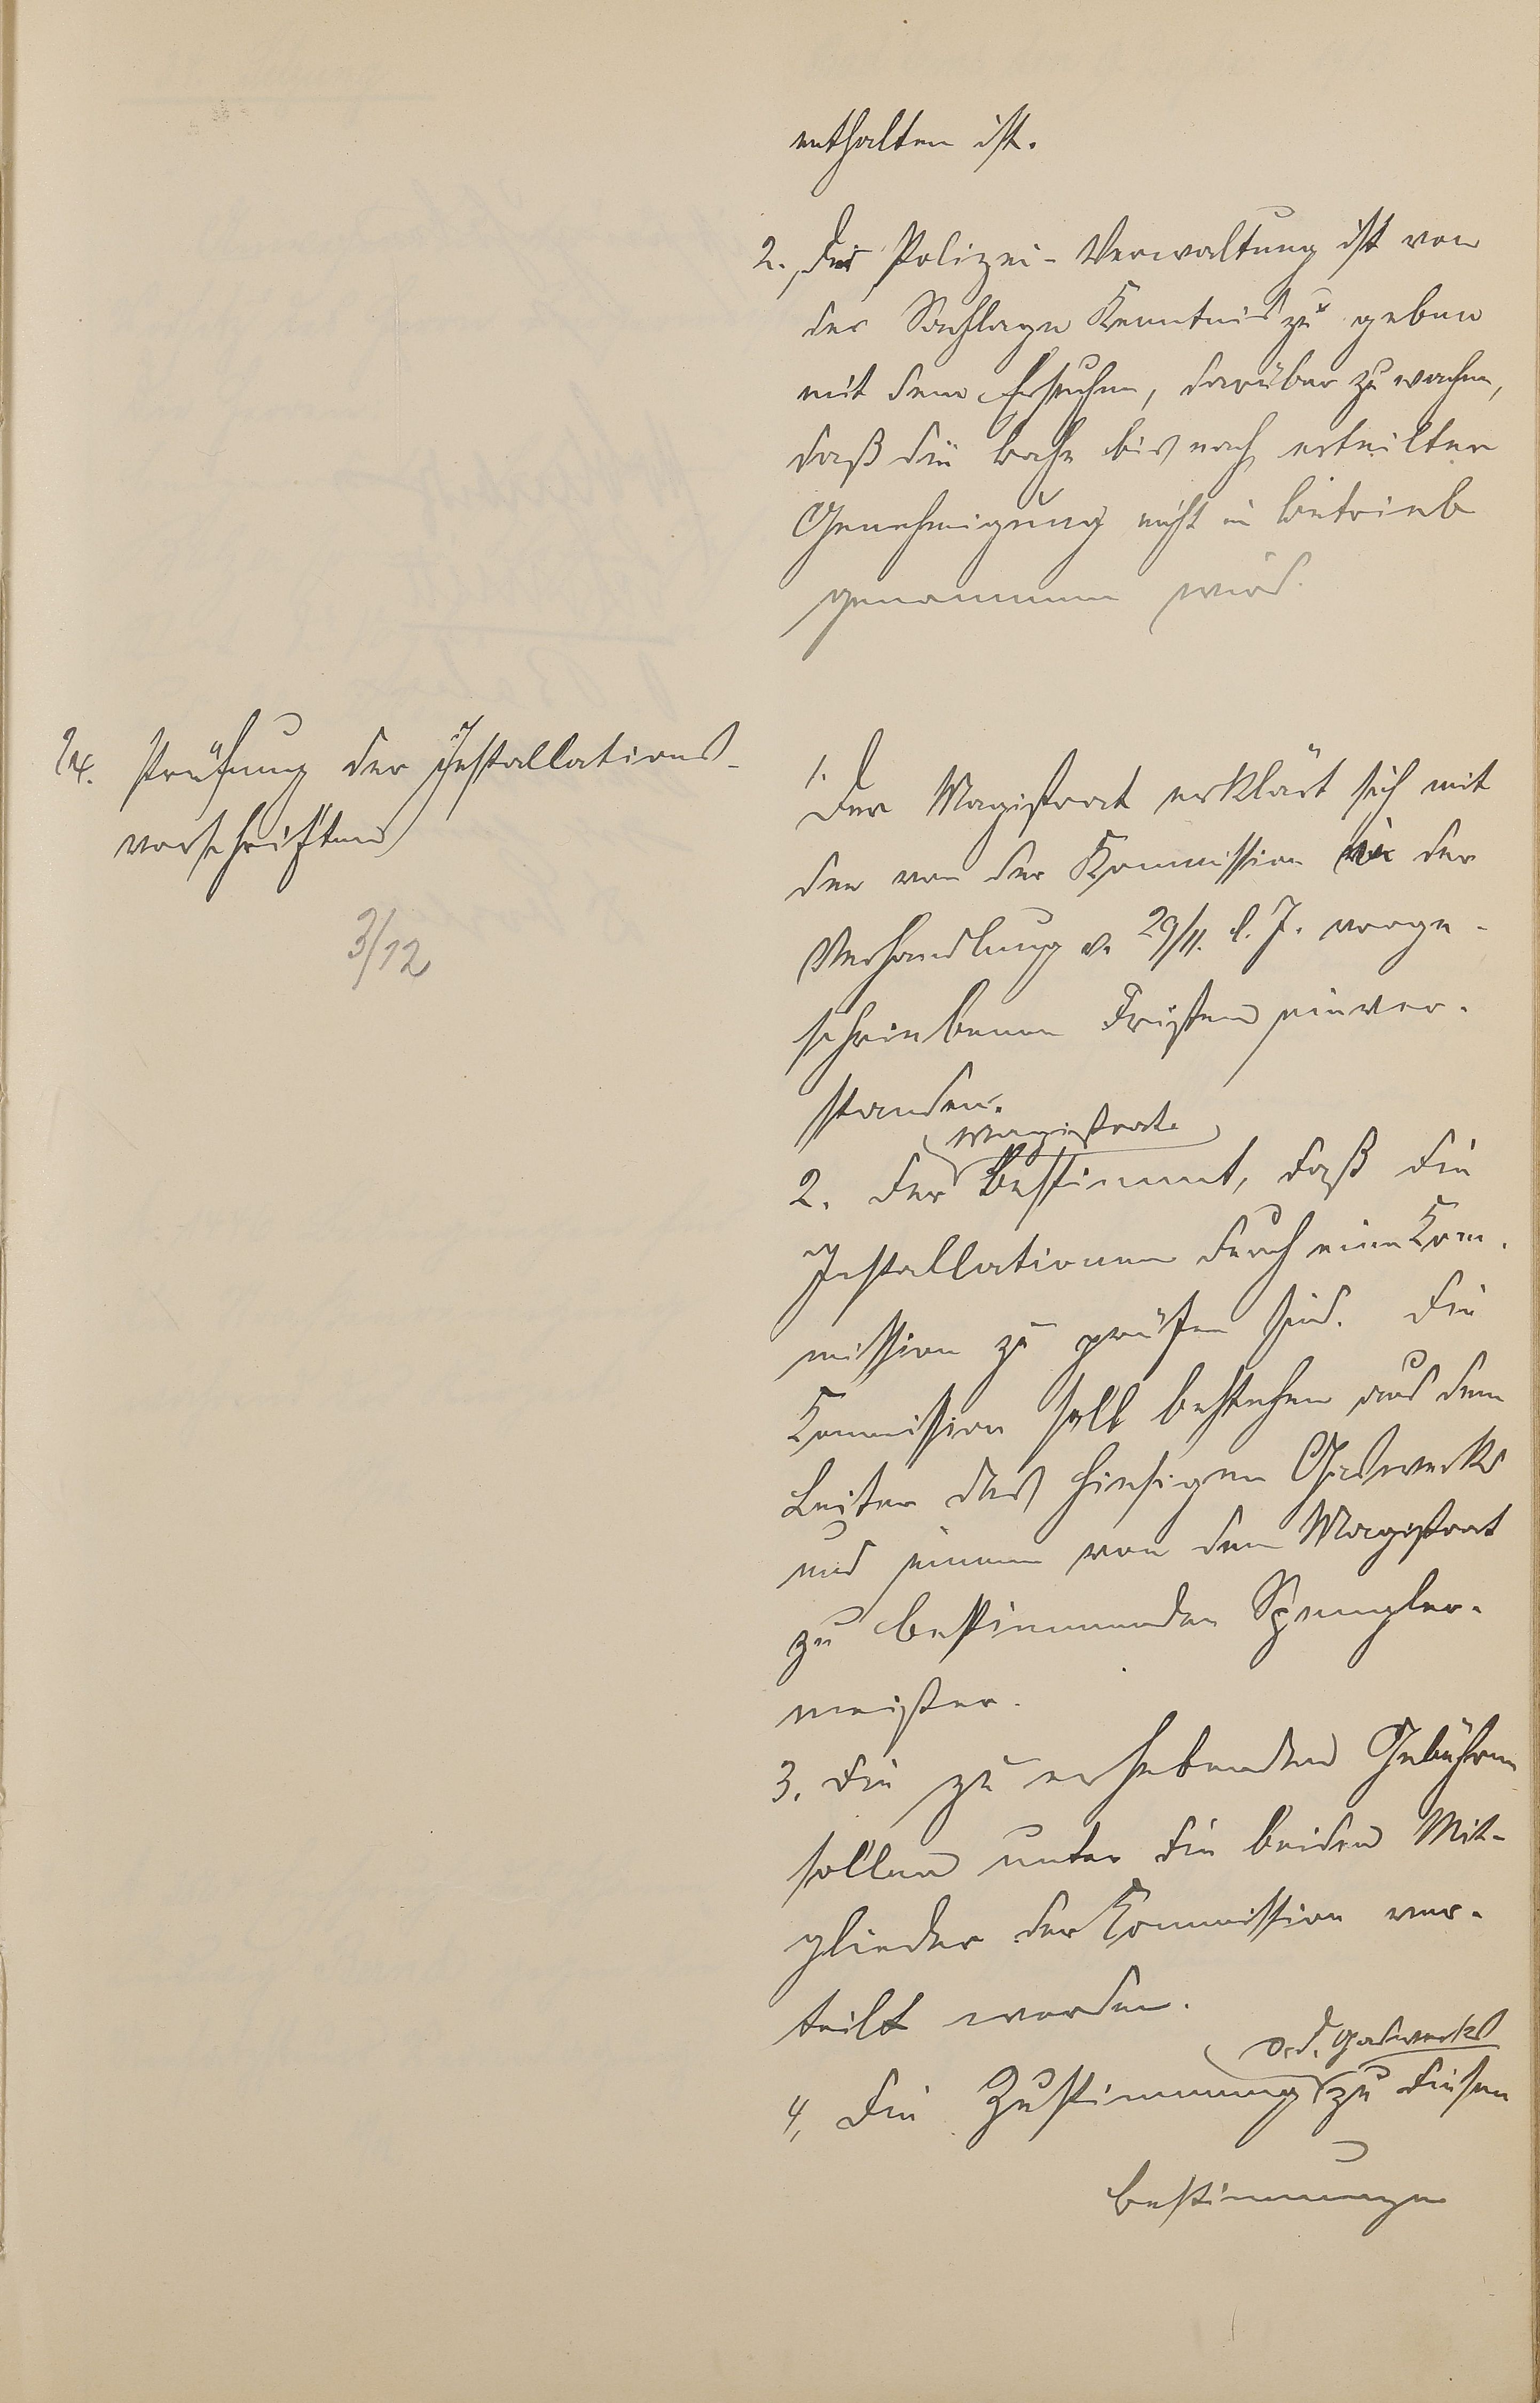 enthalten ist.
2. Der Polizei-Verwaltung ist von
der Sachlage Kenntnis zu geben
mit dem Ersuchen, darüber zu wachen,
daß die Bahn bis nach erteilter
Genehmigung nicht in Betrieb
genommen wird.
14. Prüfung der Installations-
vorschriften
3/12
1. Der Magistrat erklärt sich mit
den von der Kommission in der
Verhandlung v. 29/11. l. J. vorge-
schriebenen Fristen einver-
standen.
Magistrat
2. Der bestimmt, daß die
Installationen durch eine Kom-
mission zu prüfen sind. Die
Kommission soll bestehen aus dem
Leiter des hiesigen Gaswerks
und einem von dem Magistrat
zu bestimmenden Spengler-
meister.
3. Die zu erhebenden Gebühren
sollen unter die beiden Mit-
glieder der Kommission ver-
teilt werden.
d. Gaswerks
4. Die Zustimmung zu diesen
Bestimmungen